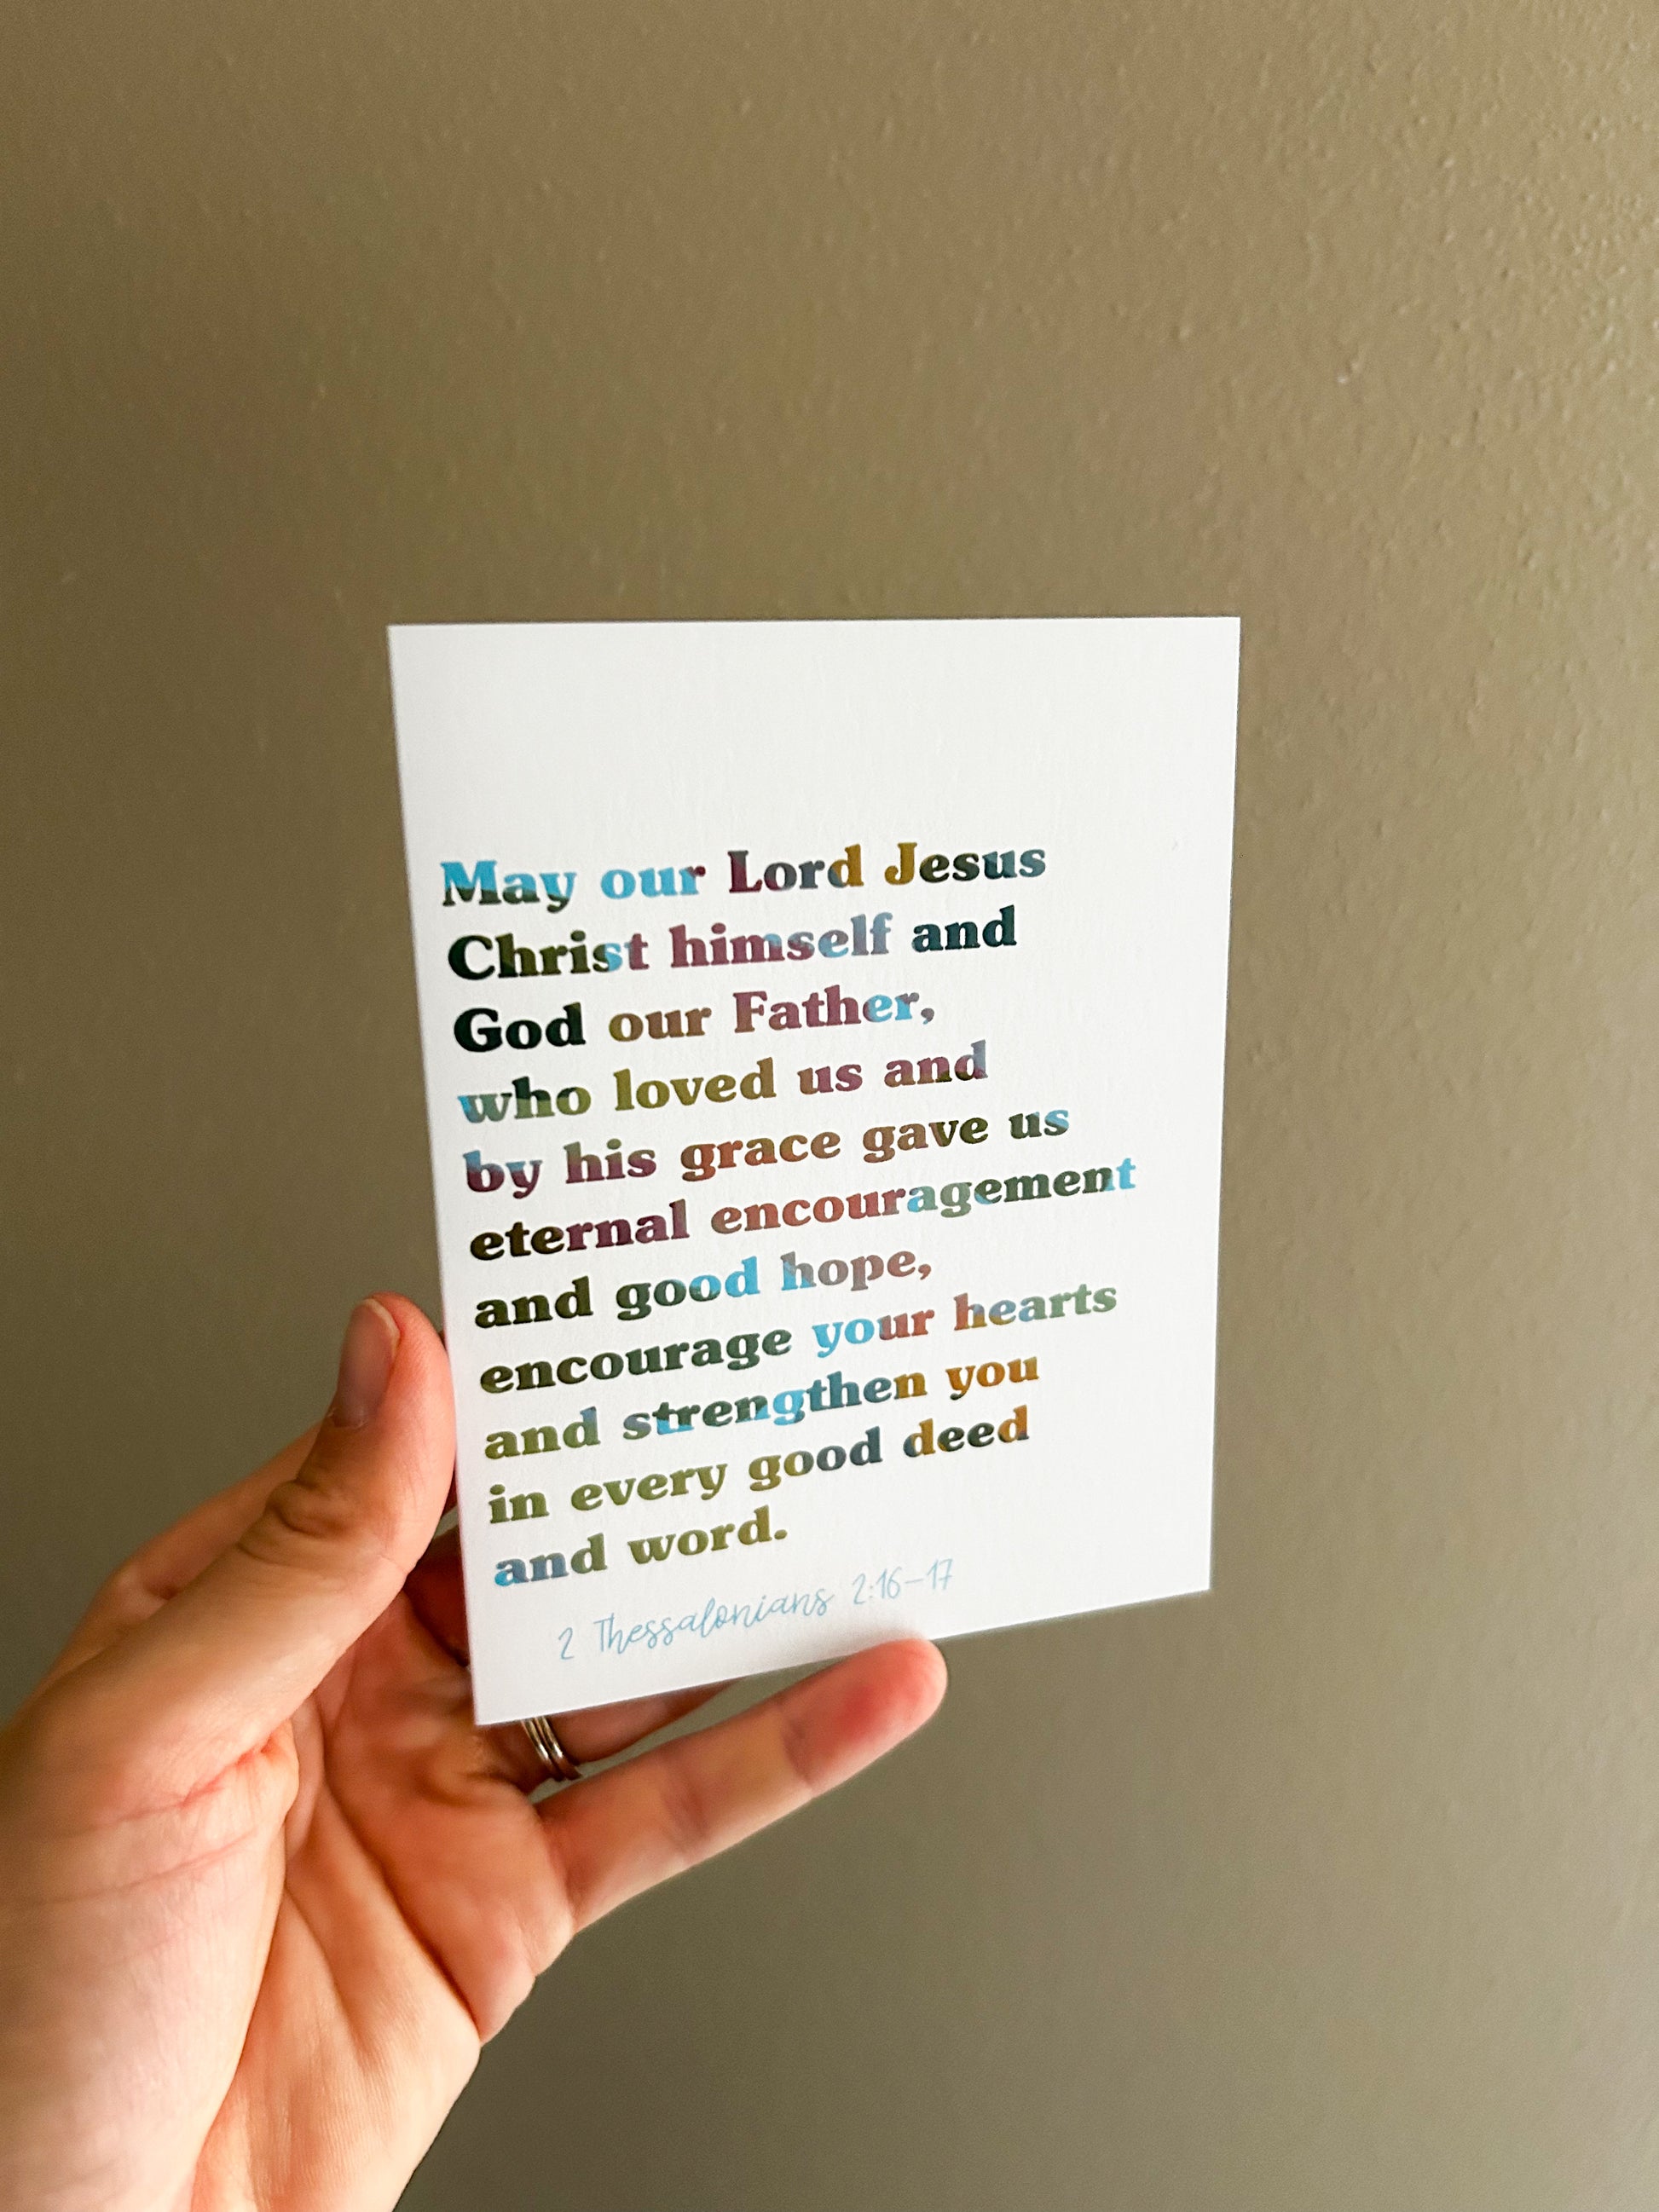 May our Lord Jesus
Christ himself and
God our Father,
who loved us and
by his grace gave us
eternal encouragement
and good hope,
encourage your hearts
and strengthen you
in every good deed
and word.
2 Thessalonians 2:16-17